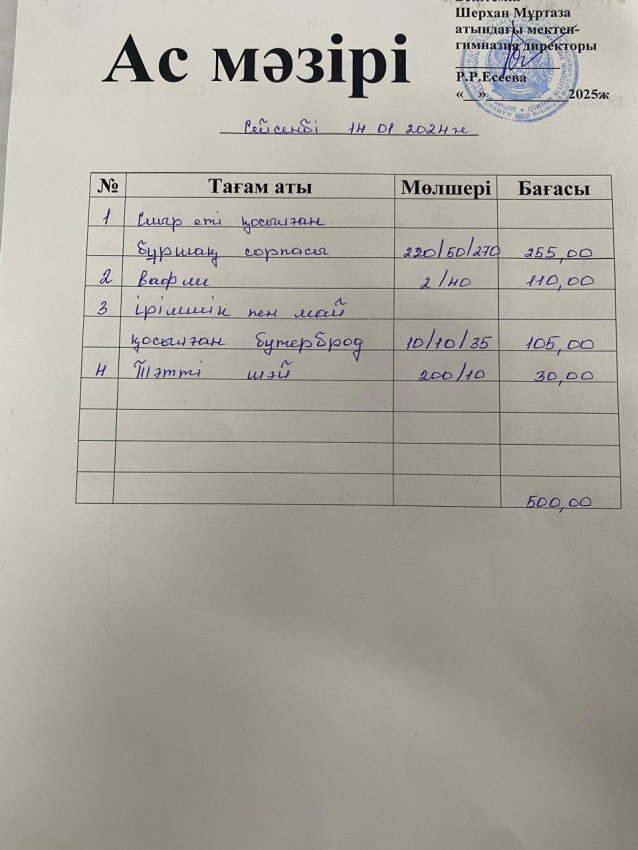 Шерхан Мұртаза
атындағы мектеп-
гимназия директоры
Р.Р.Есеева
«__»__________2025ж
Ас мәзірі
Сейсенбі 14 01 2024ж
№ Тағам аты Мөлшері Бағасы
1 Сиыр еті қосылған
бұршақ сорпасы 220/50/270 255,00
2 Вафли 2/40 110,00
3 ірімшік пен май
қосылған бутерброд 10/10/35 105,00
4 Тәтті шәй 200/10 30,00
500,00